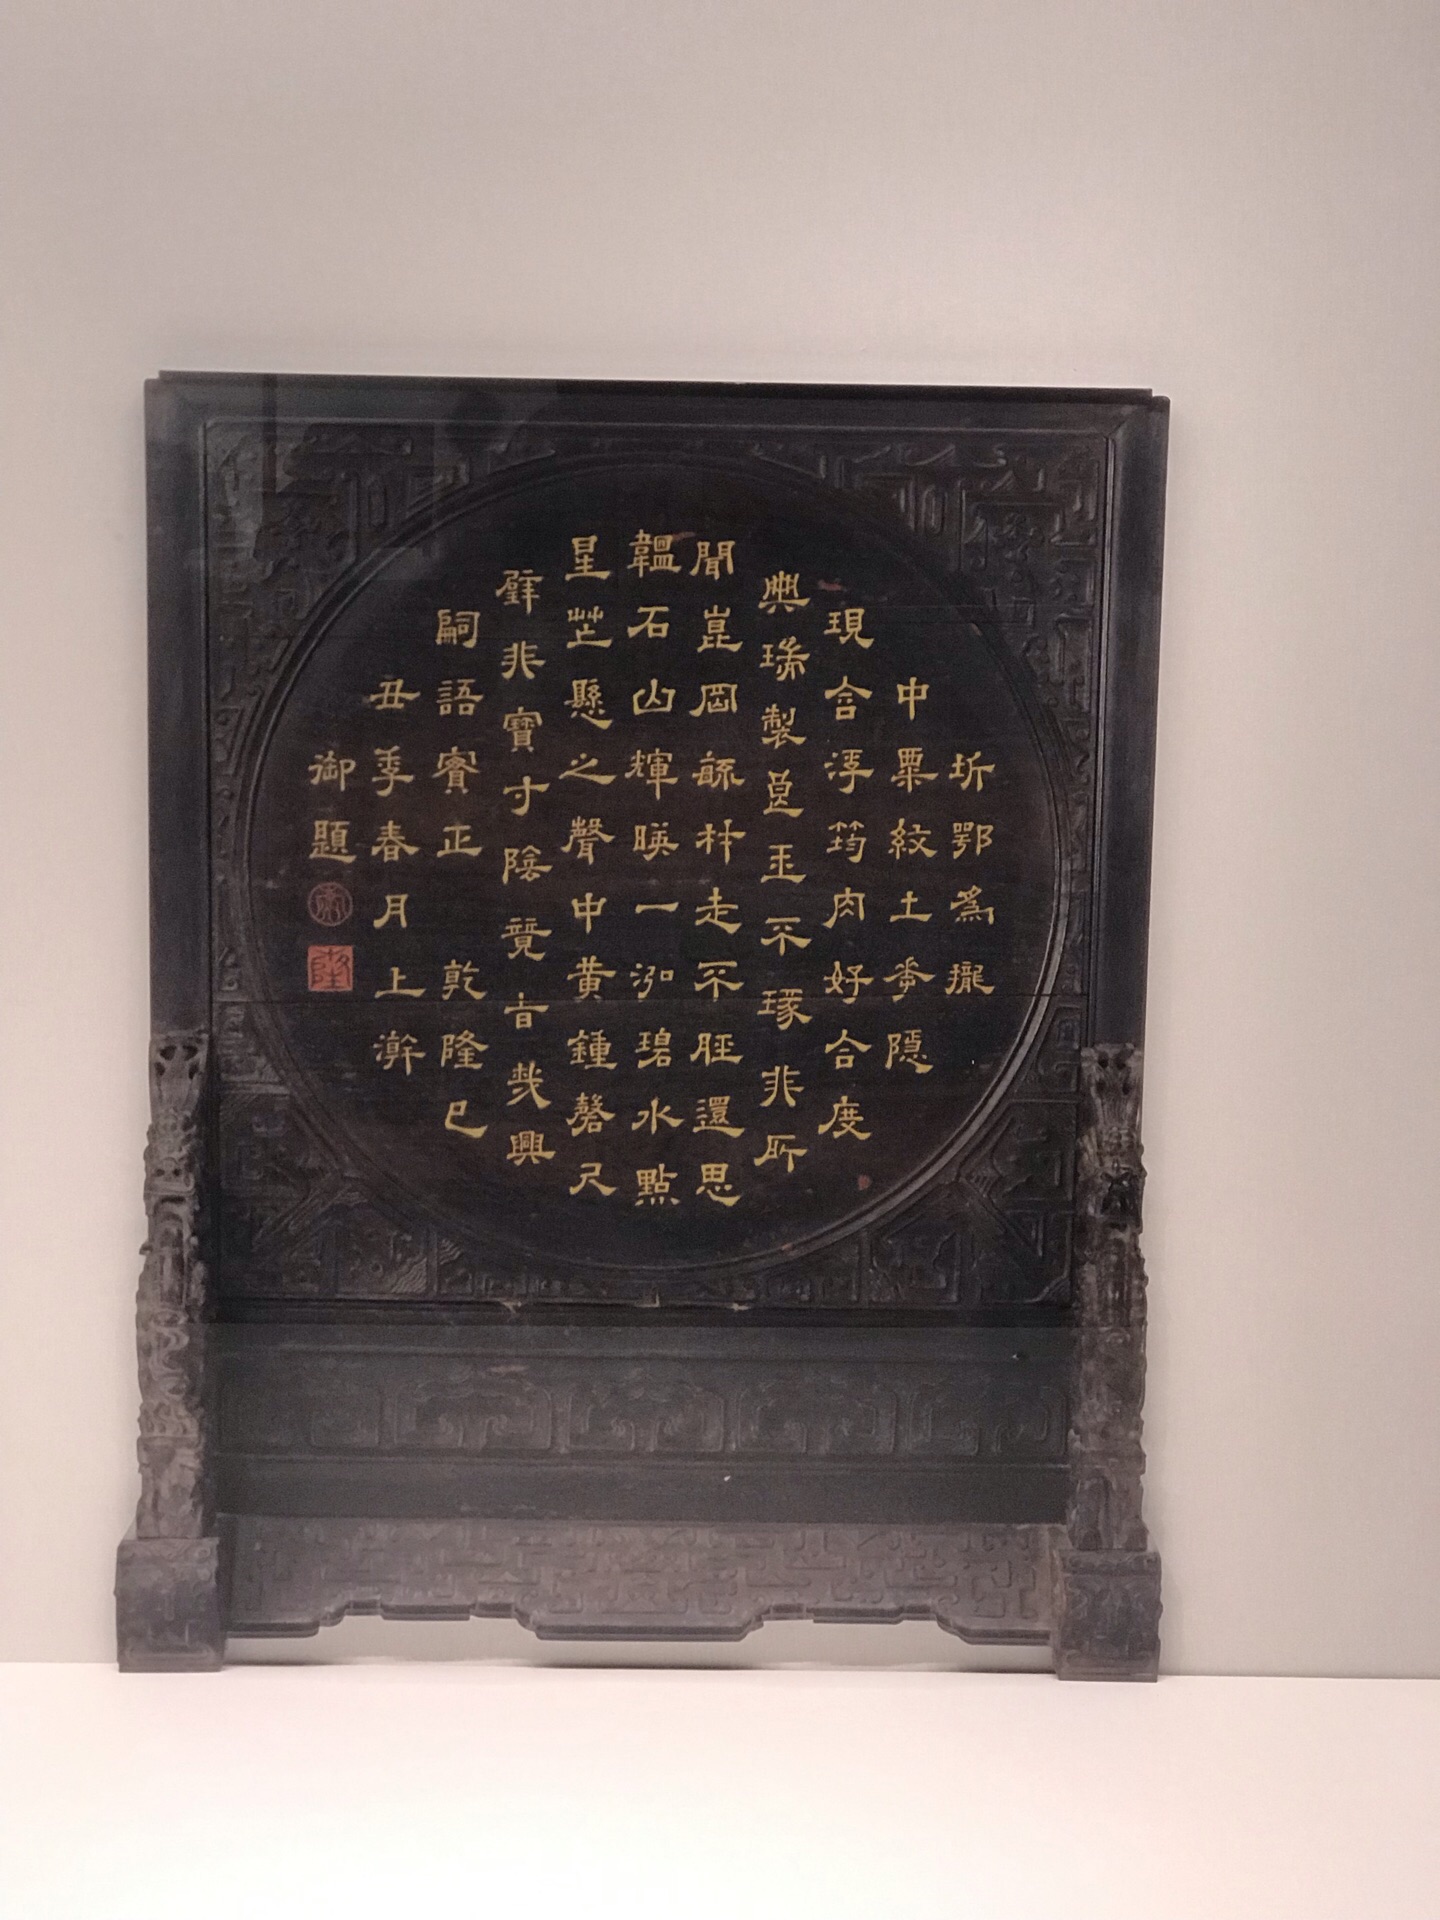 圻鄂為攏
中粟紋土華隱
現合浮筠肉好合度
典瑞製良玉不琢非所
聞崑岡毓材走不脛還思
韞石山輝暎一泓碧水點
星芒懸之聲中黃鍾磬尺
璧非寶寸陰競旨哉興
嗣語實正 乾隆己
丑季春月上澣
御題
乾
隆